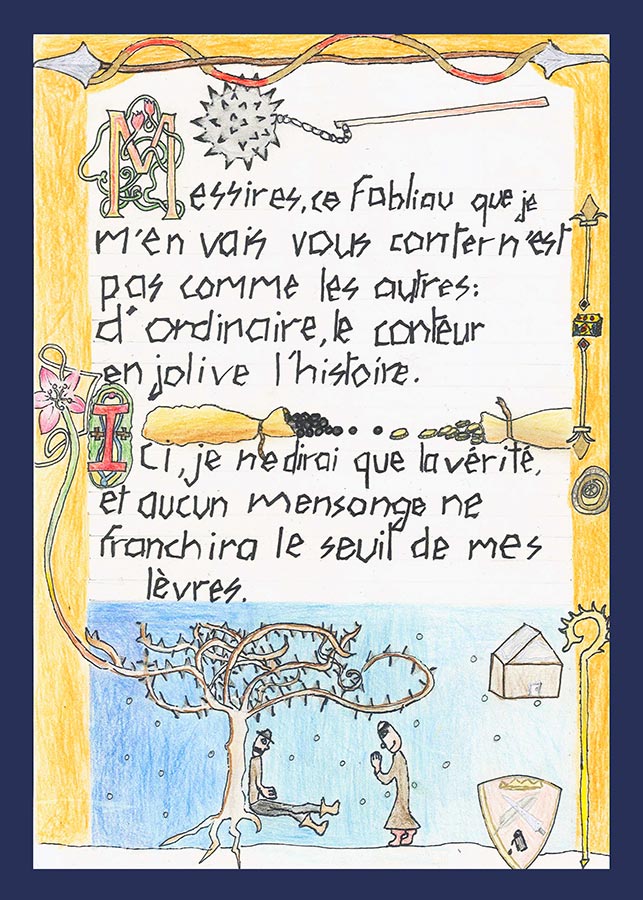 Messires, ce Fabliau que je
m'en vais vous conter n'est
pas comme les autres:
d'ordinaire, le conteur
enjolive l'histoire.
Ici, je ne dirai que la vérité,
et aucun mensonge ne
franchira le seuil de mes
lèvres.